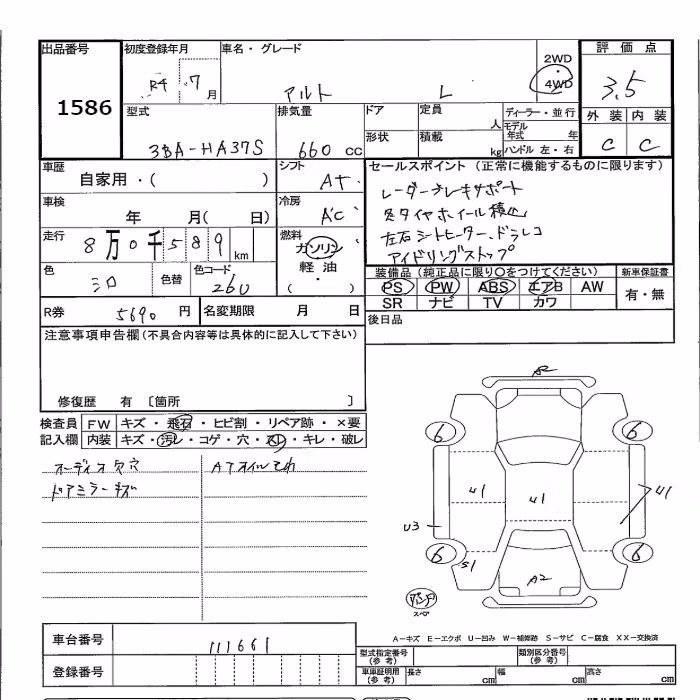 出品番号 初度登録年月 車名・グレード 2WD 評価点
1586 R4 7月 アルト L 4WD 3.5
型式 排気量 ドア 定員 人 ディーラー・並行 外装 内装
3BA-HA37S 660 cc 形状 積載 kg モデル年式 年 ハンドル 左・右 C C
車歴 自家用・( ) シフト AT セールスポイント (正常に機能するものに限ります)
レーダーブレーキサポート
車検 年 月( 日) 冷房 AC 冬タイヤホイール積込
左右シートヒーター、ドラレコ
走行 8万0千589km 燃料 ガソリン 軽油 ・( ) アイドリングストップ
色 シロ 色替 色コード 26U 装備品 (純正品に限り○をつけてください) 新車保証書
PS PW ABS エアB AW 有・無
SR ナビ TV カワ
R券 5690円 名変期限 月 日 後日品
注意事項申告欄(不具合内容等は具体的に記入して下さい)
修復歴 有 〔箇所 〕
A2
検査員 FW キズ・飛石・ヒビ割・リペア跡・×要
記入欄 内装 キズ・汚レ・コゲ・穴・スレ・キレ・破レ
6 6
オーディオ欠穴 ATオイルモれ
ドアミラーキズ
U1 U1 U1
U3
6 6
S1 A2
スペア
A-キズ E-エクボ U-凹み W-補修跡 S-サビ C-腐食 XX-交換済
車台番号 111661 型式指定番号(参考) 類別区分番号(参考)
登録番号 車庫証明用(参考) 長さ cm 幅 cm 高さ cm